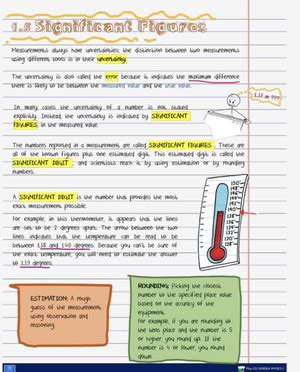 1.5 Significant Figures
Measurements always have uncertainties; the distinction between two measurements
using different tools is in their uncertainty.
The uncertainty is also called the error because it indicates the maximum difference
there is likely to be between the measured value and the true value.
In many cases the uncertainty of a number is not stated
explicitly. Instead the uncertainty is indicated by SIGNIFICANT
FIGURES, in the measured value.
The numbers reported in a measurement are called SIGNIFICANT FIGURES. These are
all of the known figures plus one estimated digit. This estimated digit is called the
SIGNIFICANT DIGIT, and scientists reach it by using estimation or by rounding
numbers.
A SIGNIFICANT DIGIT is the number that provides the most
exact measurement possible.
For example, in this thermometer, it appears that the lines
are set to be 2 degrees apart. The arrow between the two
lines indicates that the temperature can be read to be
between 138 and 140 degrees. Because you can't be sure of
the exact temperature, you will need to estimate the answer
to 139 degrees.
ESTIMATION: A rough
guess of the measurement
using observation and
reasoning.
ROUNDING: Picking the closest
number to the specified place value
based on the accuracy of the
equipment.
For example, if you are rounding to
the tens place and the number is 5
or higher, you round up. If the
number is 4 or lower, you round
down.